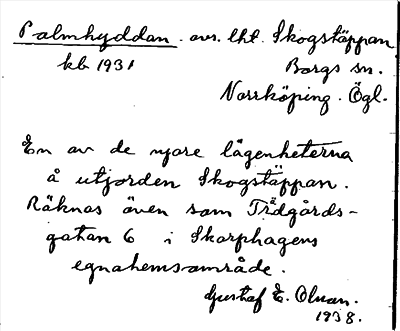 Palmhyddan. avs. lht. Skogstäppan
kb 1931 Borgs sn.
Norrköping. Ögl.
En av de nyare lägenheterna
å utjorden Skogstäppan.
Räknas även som Trädgårds-
gatan 6 i Skarphagens
egnahemsområde.
Gustaf E. Olsson.
1938.